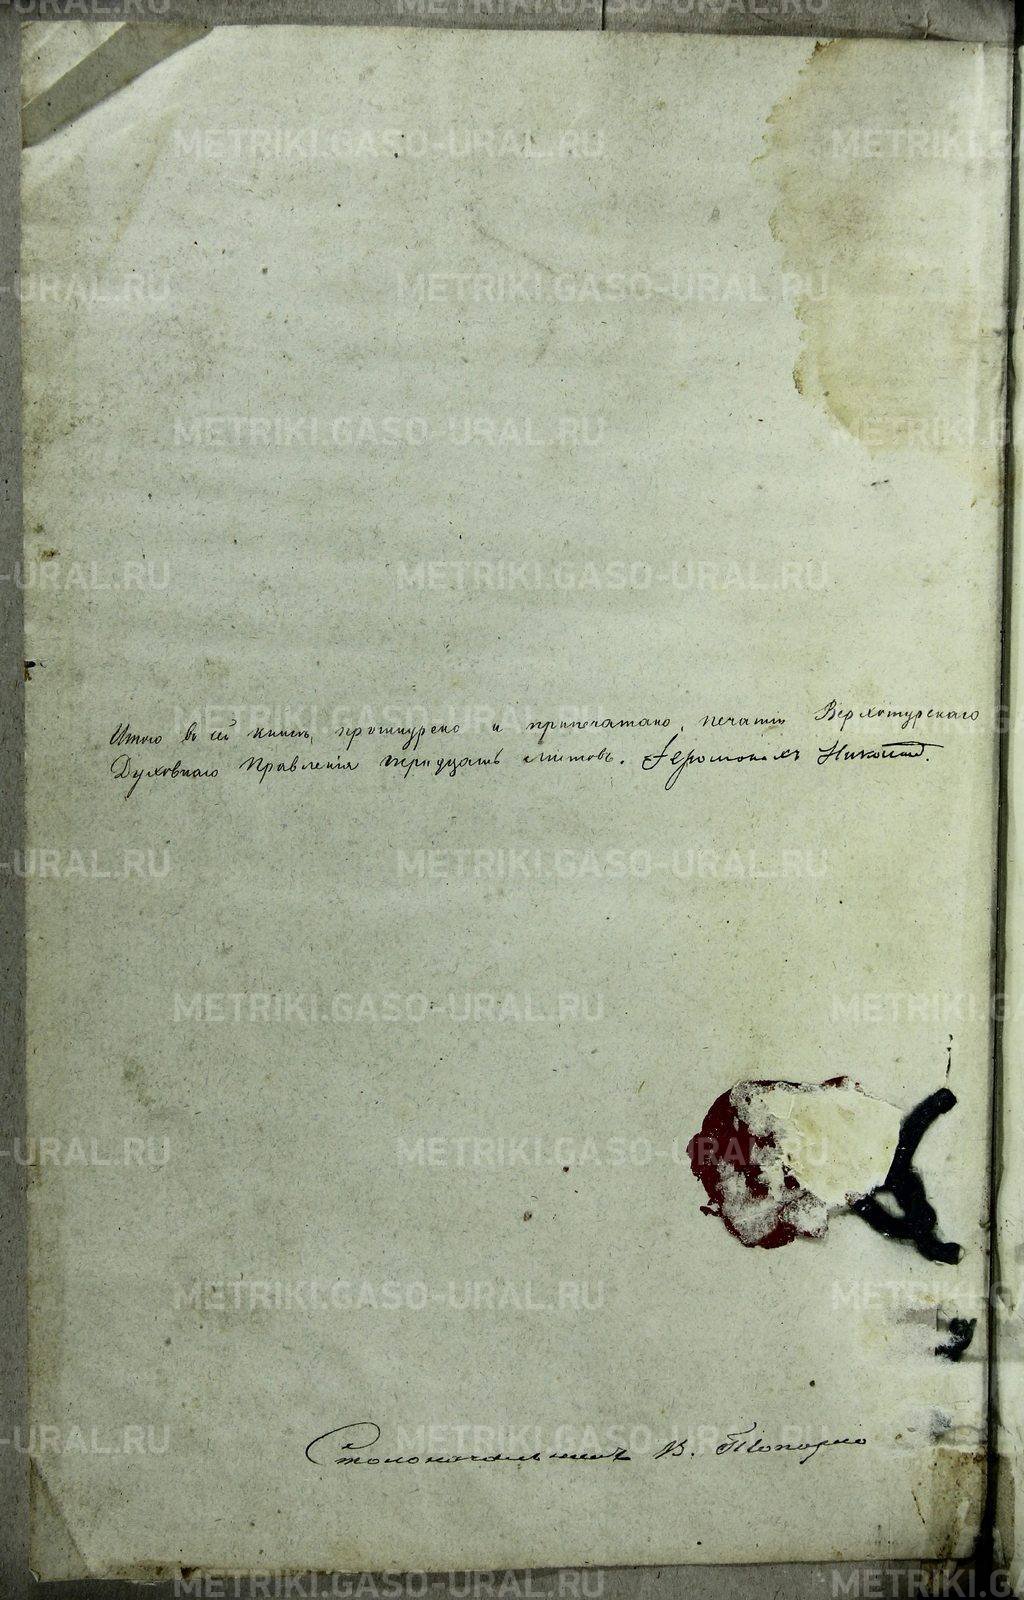 Итого въ сей книгѣ, прошнурено и припечатано, печатью Верхотурскаго
Духовнаго Правленія тридцать листовъ. Іеромонахъ
Столоначальникъ В.
METRIKI.GASO-URAL.RU